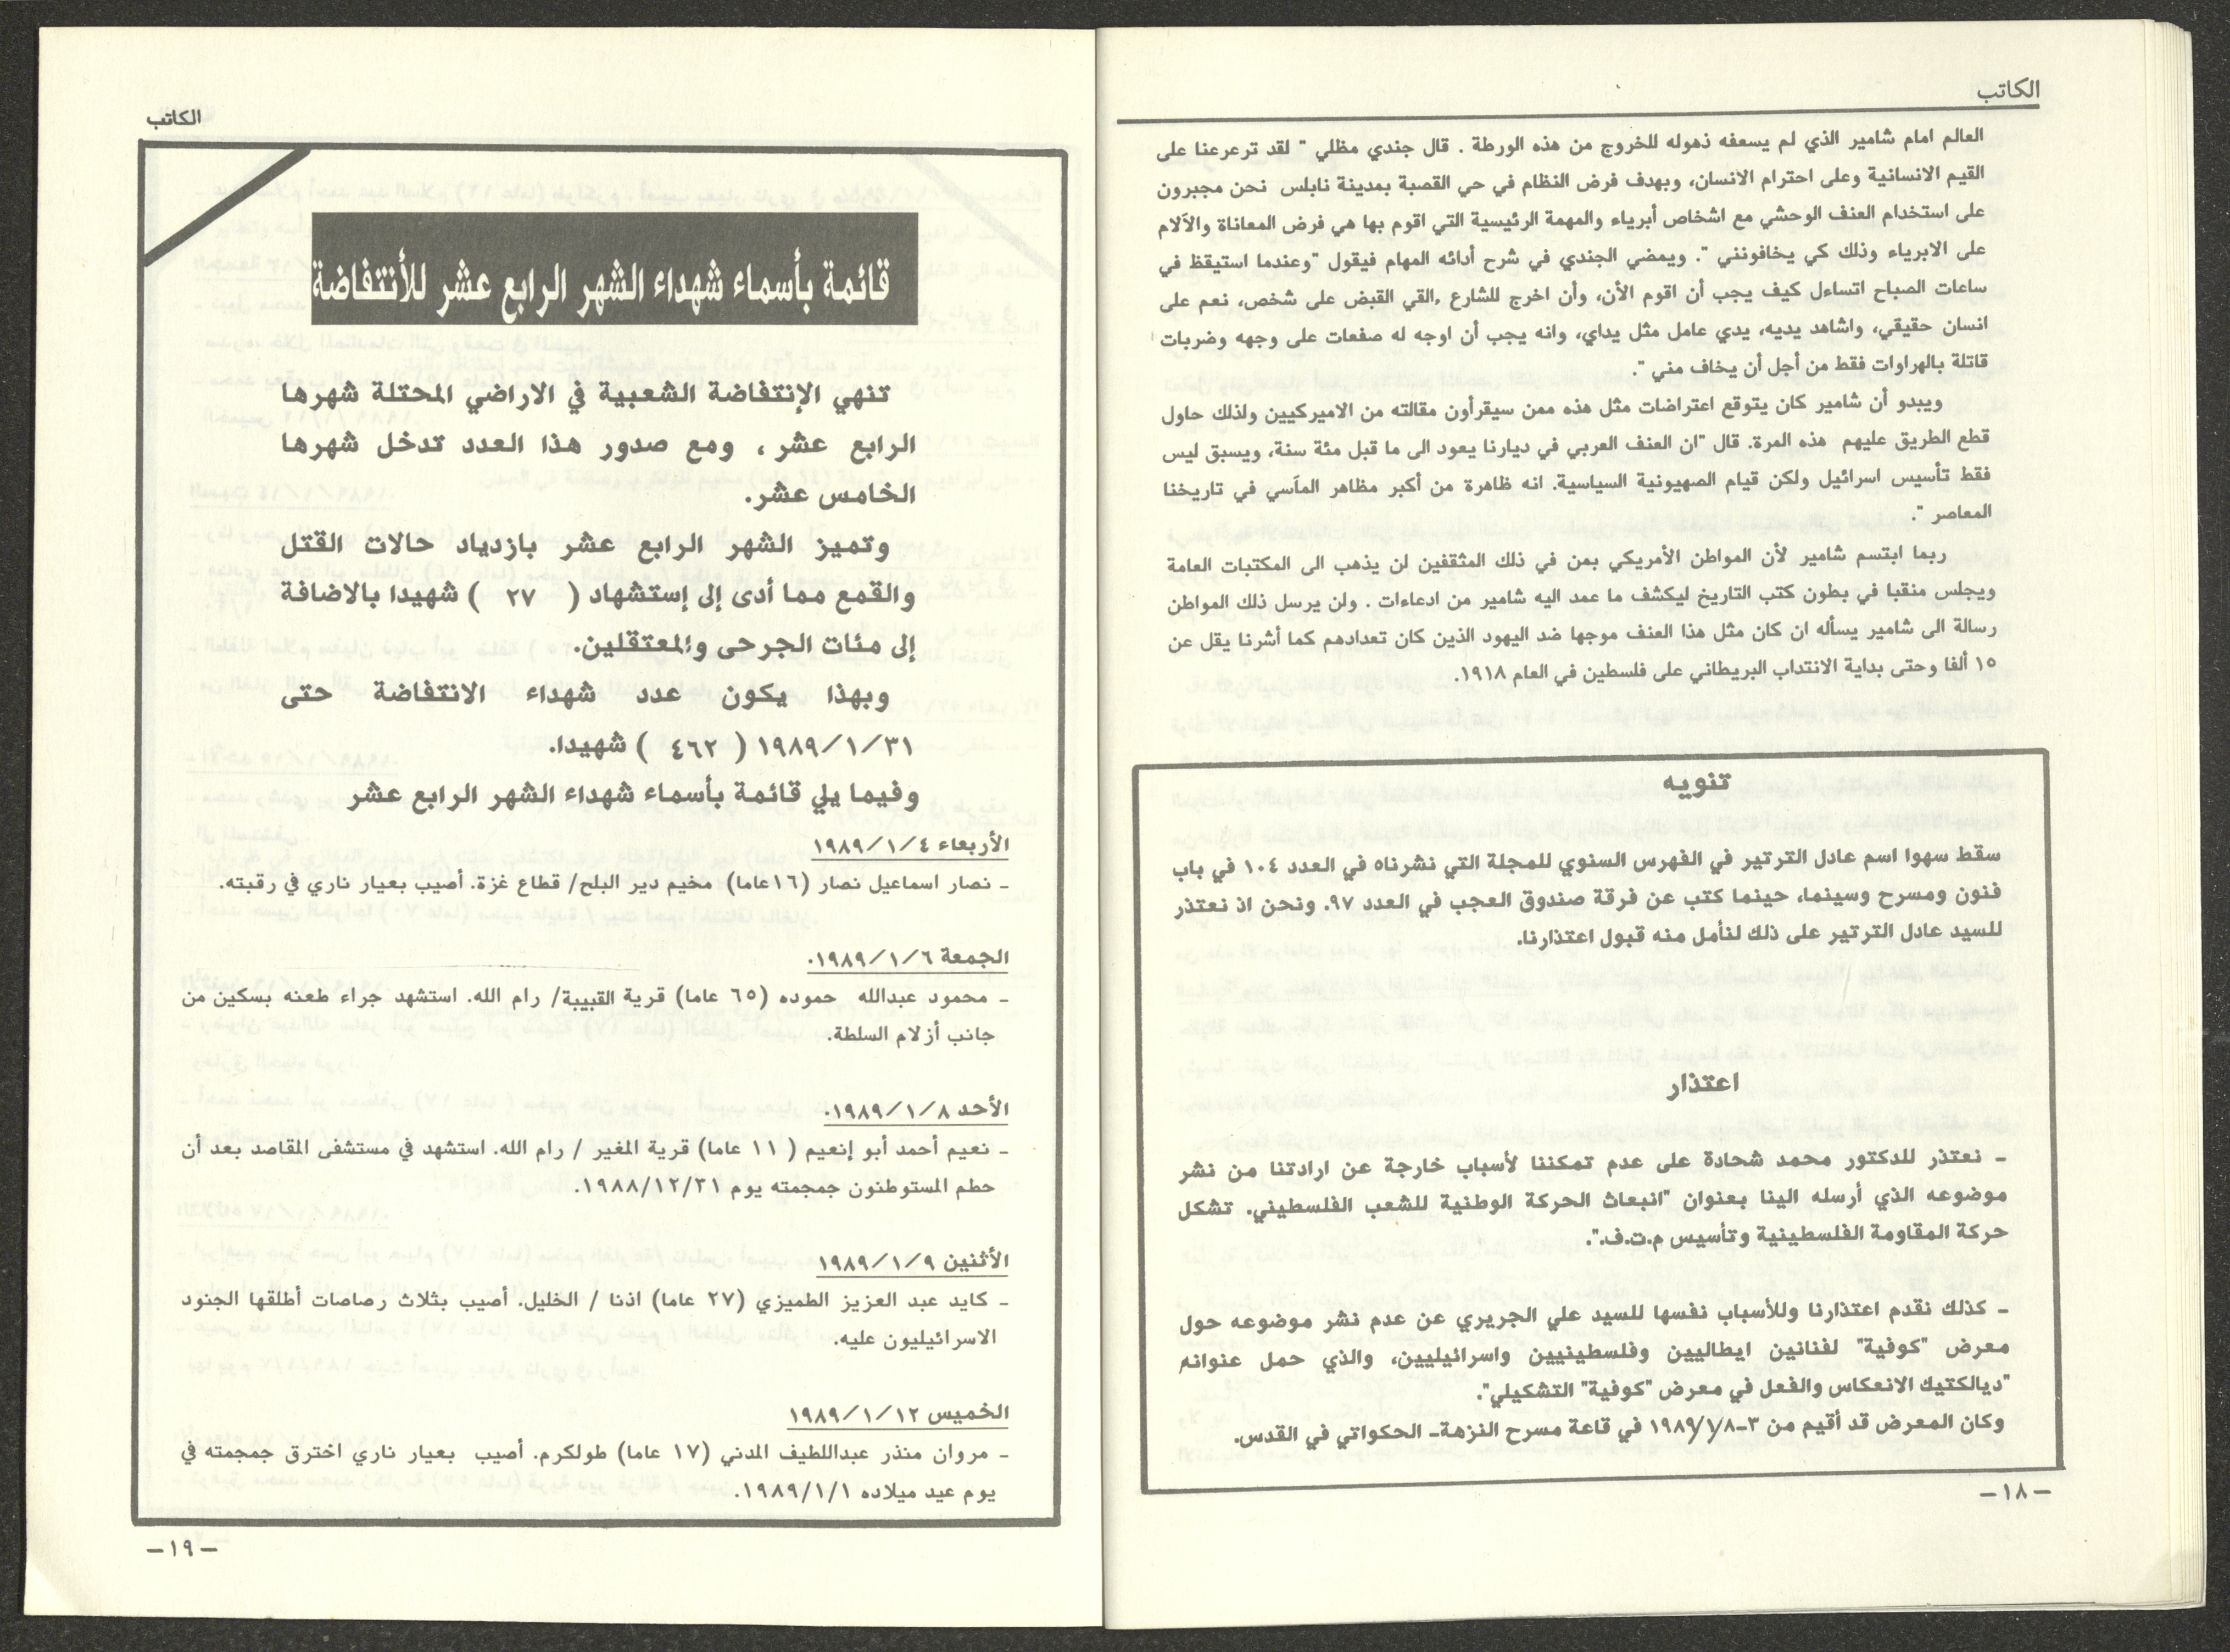 الكاتب
العالم امام شامير الذي لم يسعفه ذهوله للخروج من هذه الورطة . قال جندي مظلي " لقد ترعرعنا على
القيم الانسانية وعلى احترام الانسان، وبهدف فرض النظام في حي القصبة بمدينة نابلس نحن مجبرون
على استخدام العنف الوحشي مع اشخاص أبرياء والمهمة الرئيسية التي اقوم بها هي فرض المعاناة والآلام
على الابرياء وذلك كي يخافونني ". ويمضي الجندي في شرح أدائه المهام فيقول "وعندما استيقظ في
ساعات الصباح اتساءل كيف يجب أن اقوم الأن، وأن اخرج للشارع ,القي القبض على شخص، نعم على
انسان حقيقي، واشاهد يديه، يدي عامل مثل يداي، وانه يجب أن اوجه له صفعات على وجهه وضربات
قاتلة بالهراوات فقط من أجل أن يخاف مني ".
ويبدو أن شامير كان يتوقع اعتراضات مثل هذه ممن سيقرأون مقالته من الاميركيين ولذلك حاول
قطع الطريق عليهم هذه المرة. قال "ان العنف العربي في ديارنا يعود الى ما قبل مئة سنة، ويسبق ليس
فقط تأسيس اسرائيل ولكن قيام الصهيونية السياسية. انه ظاهرة من أكبر مظاهر المآسي في تاريخنا
المعاصر ".
ربما ابتسم شامير لأن المواطن الأمريكي بمن في ذلك المثقفين لن يذهب الى المكتبات العامة
ويجلس منقبا في بطون كتب التاريخ ليكشف ما عمد اليه شامير من ادعاءات . ولن يرسل ذلك المواطن
رسالة الى شامير يسأله ان كان مثل هذا العنف موجها ضد اليهود الذين كان تعدادهم كما أشرنا يقل عن
١٥ ألفا وحتى بداية الانتداب البريطاني على فلسطين في العام ١٩١٨.
تنويه
سقط سهوا اسم عادل الترتير في الفهرس السنوي للمجلة التي نشرناه في العدد ١٠٤ في باب
فنون ومسرح وسينما، حينما كتب عن فرقة صندوق العجب في العدد ٩٧. ونحن اذ نعتذر
للسيد عادل الترتير على ذلك لنأمل منه قبول اعتذارنا.
اعتذار
- نعتذر للدكتور محمد شحادة على عدم تمكننا لأسباب خارجة عن ارادتنا من نشر
موضوعه الذي أرسله الينا بعنوان "انبعاث الحركة الوطنية للشعب الفلسطيني. تشكل
حركة المقاومة الفلسطينية وتأسيس م.ت.ف.".
- كذلك نقدم اعتذارنا وللأسباب نفسها للسيد علي الجريري عن عدم نشر موضوعه حول
معرض "كوفية" لفنانين ايطاليين وفلسطينيين واسرائيليين، والذي حمل عنوانه
"ديالكتيك الانعكاس والفعل في معرض "كوفية" التشكيلي".
وكان المعرض قد أقيم من ٣-١٩٨٩/١/٨ في قاعة مسرح النزهة- الحكواتي في القدس.
-١٨-
الكاتب
قائمة بأسماء شهداء الشهر الرابع عشر للأنتفاضة
تنهي الإنتفاضة الشعبية في الاراضي المحتلة شهرها
الرابع عشر، ومع صدور هذا العدد تدخل شهرها
الخامس عشر.
وتميز الشهر الرابع عشر بازدياد حالات القتل
والقمع مما أدى إلى إستشهاد ( ٢٧ ) شهيدا بالاضافة
إلى مئات الجرحى والمعتقلين.
وبهذا يكون عدد شهداء الانتفاضة حتى
١٩٨٩/١/٣١ ( ٤٦٢ ) شهيدا.
وفيما يلي قائمة بأسماء شهداء الشهر الرابع عشر
الأربعاء ١٩٨٩/١/٤
- نصار اسماعيل نصار (١٦عاما) مخيم دير البلح/ قطاع غزة. أصيب بعيار ناري في رقبته.
الجمعة ١٩٨٩/١/٦.
- محمود عبدالله حموده (٦٥ عاما) قرية القبيبة/ رام الله. استشهد جراء طعنه بسكين من
جانب أزلام السلطة.
الأحد ١٩٨٩/١/٨.
- نعيم أحمد أبو إنعيم ( ١١ عاما) قرية المغير / رام الله. استشهد في مستشفى المقاصد بعد أن
حطم المستوطنون جمجمته يوم ١٩٨٨/١٢/٣١.
الأثنين ١٩٨٩/١/٩
- كايد عبد العزيز الطميزي (٢٧ عاما) اذنا / الخليل. أصيب بثلاث رصاصات أطلقها الجنود
الاسرائيليون عليه.
الخميس ١٩٨٩/١/١٢
- مروان منذر عبداللطيف المدني (١٧ عاما) طولكرم. أصيب بعيار ناري اخترق جمجمته في
يوم عيد ميلاده ١٩٨٩/١/١.
-١٩-